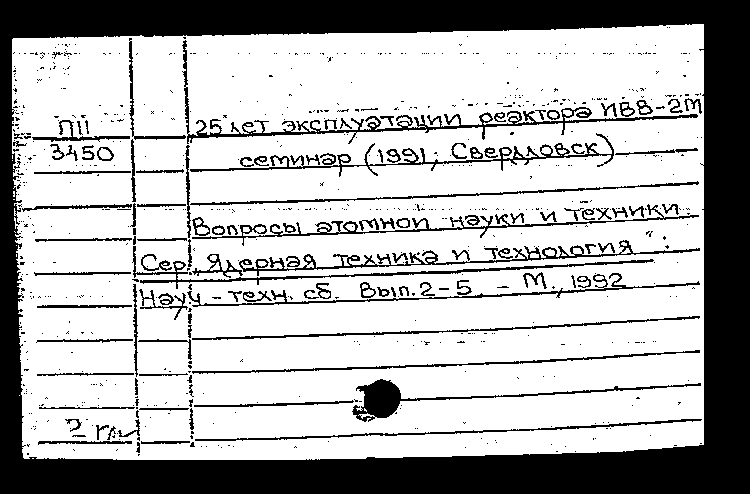 ПII 25 лет эксплуатации реактора ИВВ-2М
3450 семинар (1991; Свердловск)
Вопросы атомной науки и техники
Сер. „Ядерная техника и технология“:
Науч-техн. сб. Вып. 2-5. - М., 1992